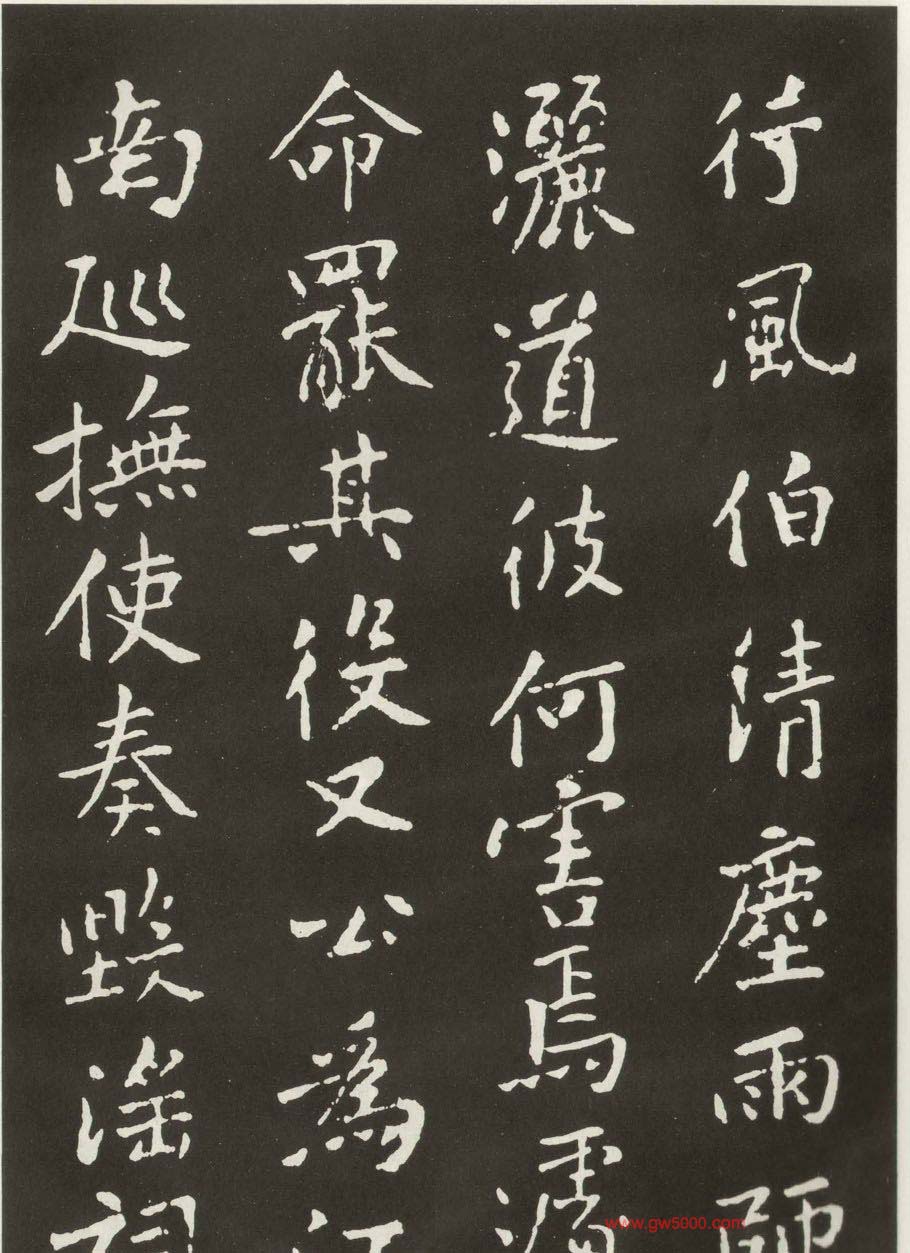 行風伯清塵雨師
灑道彼何害焉遽
命罷其役又公為江
南巡撫使奏毀淫祠
www.gw5000.com